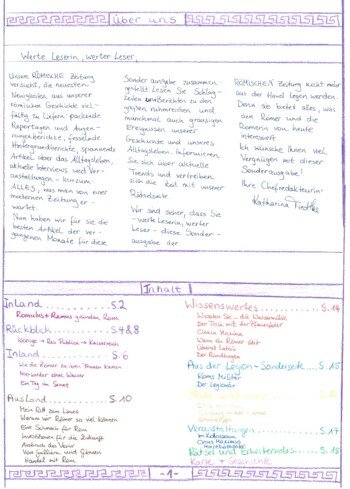 über uns
Werte Leserin, werter Leser,
Unsere RÖMISCHE Zeitung
versucht, die neuesten
Neuigkeiten aus unserer
römischen Geschichte viel-
fältig zu liefern: packende
Reportagen und Augen-
zeugenberichte, fesselnde
Hintergrundberichte, spannende
Artikel über das Alltagsleben,
aktuelle Interviews und Ver-
anstaltungen - kurzum
ALLES, was man von einer
modernen Zeitung er-
wartet.
Nun haben wir für Sie die
besten Artikel der ver-
gangenen Monate für diese
Sonderausgabe zusammen-
gestellt. Lesen Sie Schlag-
zeilen und Berichten zu den
großen ruhmreichen und
manchmal auch grausigen
Ereignissen unserer
Geschichte und unseres
Alltagslebens. Informieren
Sie sich über aktuelle
Trends und vertreiben
sich die Zeit mit unserer
Rätselseite
Wir sind sicher, dass Sie
- werte Leserin, werter
Leser - diese Sonder-
ausgabe der
RÖMISCHEN Zeitung nicht mehr
aus der Hand legen werden.
Denn sie bietet alles, was
den Römer und die
Römerin von heute
interessiert.
Ich wünsche Ihnen viel
Vergnügen mit dieser
Sonderausgabe!
Ihre Chefredakteurin
Katharina
Inhalt
Inland S.2
Romulus + Remus gründen Rom
Rückblick S.4&8
Könige → Res Publica → Kaiserreich
Inland S.6
Wie die Römer zu ihren Frauen kamen
Nie wieder ohne Wasser
Ein Tag im Senat
Ausland S.10
Mein Fuß am Limes
Warum wir Römer so viel können
Eine Schmach für Rom
Investitionen für die Zukunft
Ausbruch des Vesuv
Von Galliern und Gänsen
Handel mit Rom
Wissenswertes S.14
Wussten Sie... die Wassermühle
Der Tisch mit der Pfauenfeder
Cloaca Maxima
Wenn die Römer
Überall Latein
Der Rundbogen
Aus der Legion - Sonderseite S.15
Roms Militär
Der Legionär
Veranstaltungen S.17
Im Kolosseum
Circus Maximus
Rätsel und Erheiterndes S.18
Karte + Geschichte
-1-